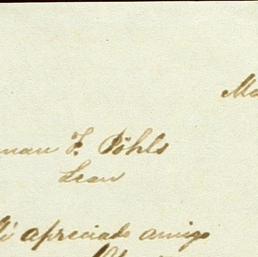 Ma
man F. Pöhls
Leon
Mi apreciado amigo